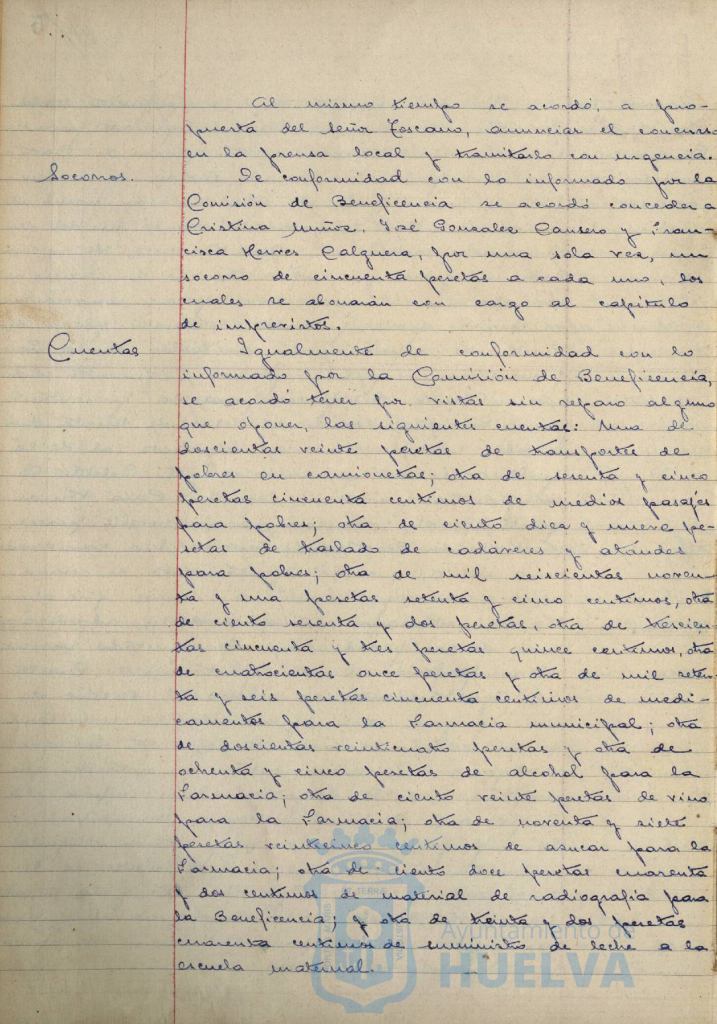 Al mismo tiempo se acordó, a pro-
puesta del señor Toscano, anunciar el concurso
en la prensa local y tramitarlo con urgencia.
Socorros.
De conformidad con lo informado por la
Comisión de Beneficencia se acordó conceder a
Cristina Muñoz, José Gonzalez Cansero y Fran-
cisca Herves Calguera, por una sola vez, un
socorro de cincuenta pesetas a cada uno, los
cuales se abonarán con cargo al capitulo
de imprevistos.
Cuentas
Igualmente de conformidad con lo
informado por la Comisión de Beneficencia,
se acordó tener por vistas sin reparo alguno
que oponer, las siguientes cuentas: Una de
doscientas veinte pesetas de transportes de
pobres en camionetas; otra de sesenta y cinco
pesetas cincuenta centimos de medios pasajes
para pobres; otra de ciento diez y nueve pe-
setas de traslado de cadáveres y ataudes
para pobres; otra de mil seiscientas noven-
ta y una pesetas setenta y cinco centimos, otra
de ciento sesenta y dos pesetas, otra de trescien-
tas cincuenta y tres pesetas quince centimos, otra
de cuatrocientas once pesetas y otra de mil seten-
ta y seis pesetas cincuenta centimos de medi-
camentos para la Farmacia municipal; otra
de doscientas veinticuatro pesetas y otra de
ochenta y cinco pesetas de alcohol para la
Farmacia; otra de ciento veinte pesetas de vino
para la Farmacia; otra de noventa y siete
pesetas veinticinco centimos de azucar para la
Farmacia; otra de ciento doce pesetas cuarenta
y dos centimos de material de radiografia para
la Beneficencia; y otra de treinta y dos pesetas
cuarenta centimos de suministro de leche a la
escuela maternal.
Ayuntamiento de
HUELVA